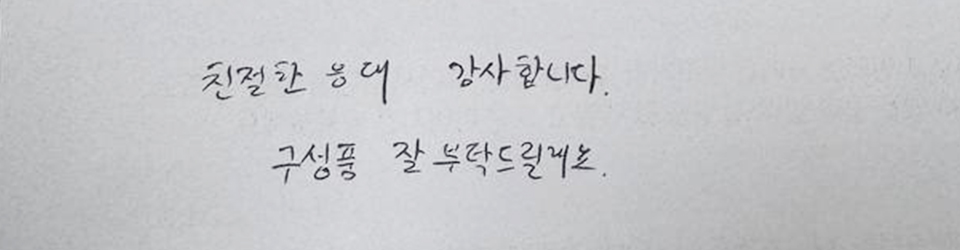 친절한 응대 감사합니다.
구성품 잘 부탁드릴게요.